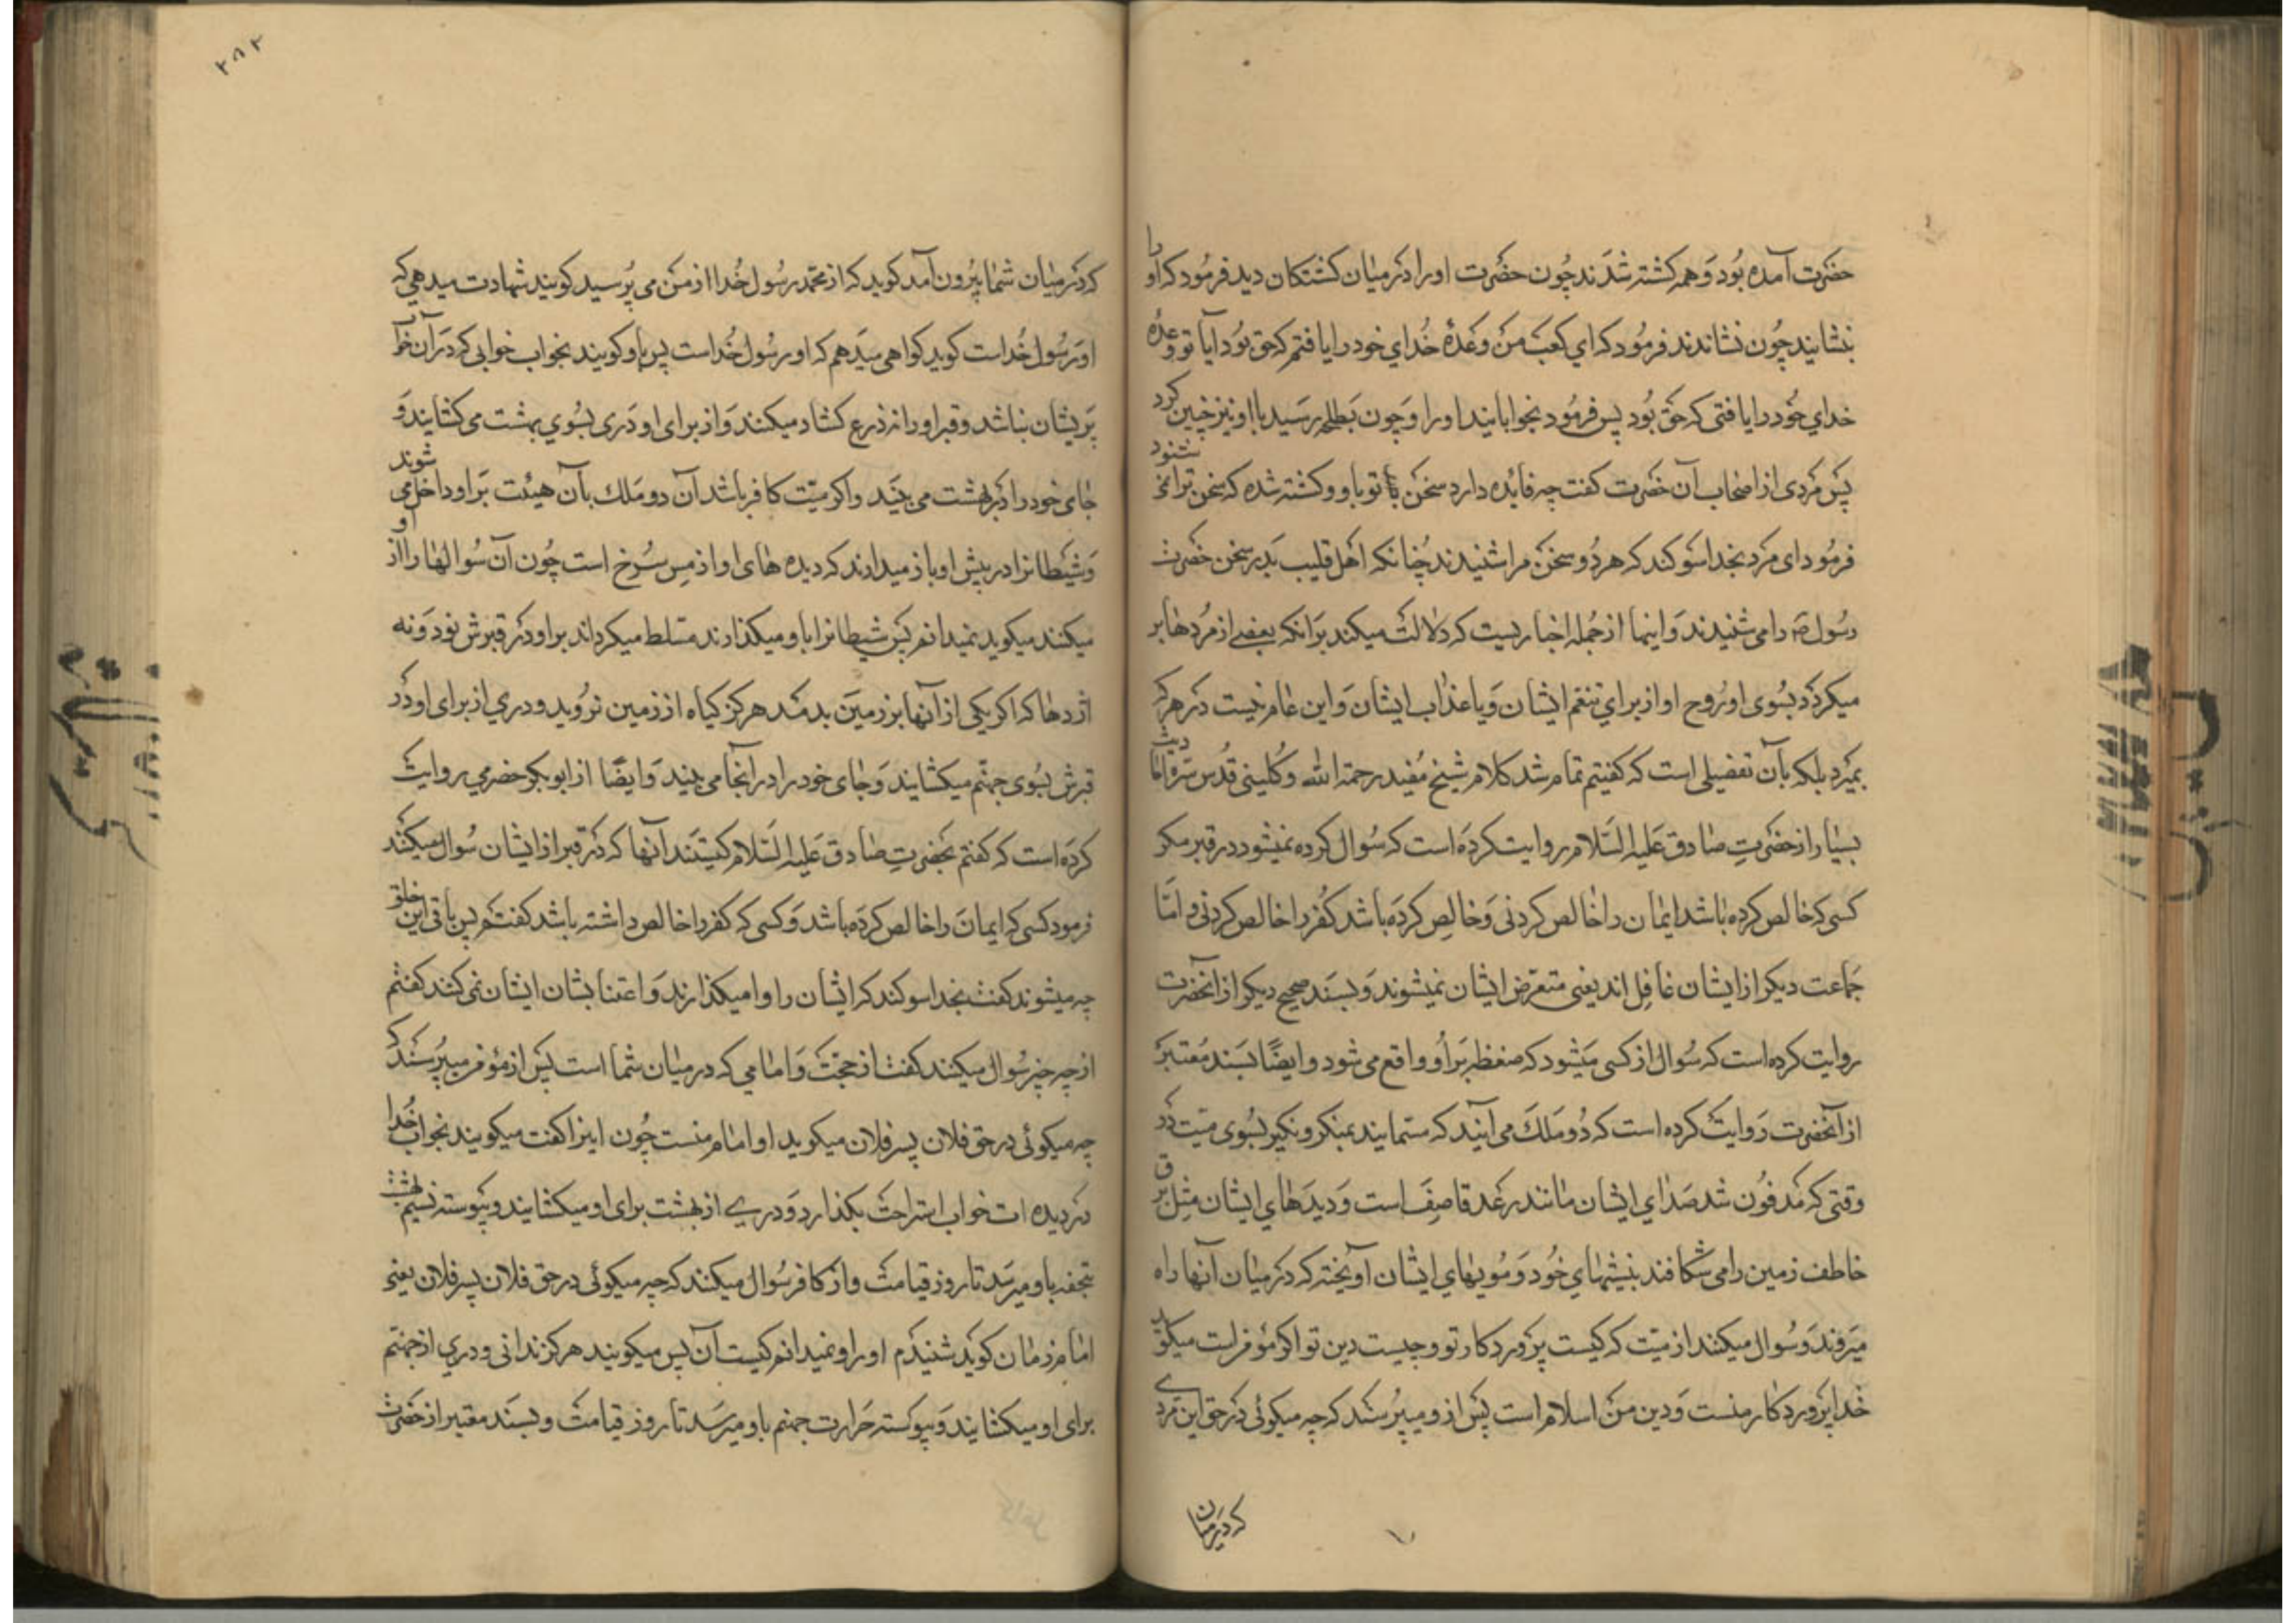 حضرت آمده بود و همه کشته شدند چون حضرت او را در میان کشتکان دید فرمود که او را
بنشانید چون نشاندند فرمود که ای کعب من وعدۀ خدای خود را یافتم که حق بود آیا تو وعدۀ
خدای خود را یافتی که حق بود پس فرمود بخوابانید او را و چون بطلحه رسید با او نیز چنین کرد
پس مردی از اصحاب آن حضرت کفت چه فایده دارد سخن تو با دو کشته شده که سخن ترا نمی شنود
فرمود ای مرد بخدا سوکند که هر دو سخن مرا شنیدند چنانکه اهل قلیب بدر سخن حضرت
رسول ص را می شنیدند و اینها از جمله اخباریست که دلالت میکند بر آنکه بعضی از مردها بر
میکردد بسوی او روح او از برای تنعم ایشان و یا عذاب ایشان و این عام نیست در هر که
بمیرد بلکه بآن تفضیلی است که کفتیم تمام شد کلام شیخ مفید رحمة الله و کلینی قدس سره احادیث
بسیار از حضرت صادق علیه السلام روایت کرده است که سوال کرده نمیشود در قبر مکر
کسی که خالص کرده باشد ایمان را خالص کردنی و خالص کرده باشد کفر را خالص کردنی و امّا
جماعت دیکر از ایشان غافل اند یعنی متعرّض ایشان نمیشوند و بسند صحیح دیکر از آنحضرت
روایت کرده است که سوال از کسی میشود که ضغطه بر او واقع می شود و ایضًا بسند معتبر
از آنحضرت روایت کرده است که دو ملک می آیند که مسمایند بمنکر و نکیر بسوی میّت در
وقتی که مدفون شد صدای ایشان مانند رعد قاصف است و دیدهای ایشان مثل برق
خاطف زمین را می شکافند بنیشهای خود و مویهای ایشان آویخته که در میان آنها راه
میروند و سوال میکنند از میّت که کیست پروردکار تو و چیست دین تو اکر مؤمن است میکوید
خدا پروردکار منست و دین من اسلام است پس از و میپرسند که چه میکوئی در حق این مردی
که در میان
۲۸۲
که در میان شما بیرون آمد کوید که از محمد رسول خدا از من می پرسید کویند شهادت میدهی که
او رسول خداست کوید کواهی میدهم که او رسول خداست پس باو کویند بخواب خوابی که در آن خواب
پریشان نباشد و قبر او را نه ذرع کشاد میکنند و از برای او دری بسوی بهشت می کشایند و
جای خود را در بهشت می بیند و اکر میّت کافر باشد آن دو ملک بآن هیئت بر او داخل می شوند
و شیطانرا در پیش او باز میدارند که دیده های او از مس سرخ است چون آن سوالها را از او
میکنند میکوید نمیدانم پس شیطانرا باو میکذارند مسلط میکرداند بر او در قبرش نود و نه
اژدها که اکر یکی از آنها بر زمین بدمد هرکز کیاه از زمین نروید و دری از برای او در
قبرش بسوی جهنّم میکشایند و جای خود را در آنجا می بیند و ایضًا از ابوبکر حضرمی روایت
کرده است که کفتم بحضرت صادق علیه السّلام کیستند آنها که در قبر از ایشان سوال میکنند
فرمود کسی که ایمان را خالص کرده باشد و کسی که کفر را خالص داشته باشد کفتم پس باقی این خلق
چه میشوند کفت بخدا سوکند که ایشان را وا میکذارند و اعتنا بشان ایشان نمی کنند کفتم
از چه چیز سوال میکنند کفت از حجّت و امامی که در میان شما است پس از مؤمن میپرسند که
چه میکوئی در حق فلان پسر فلان میکوید او امام منست چون اینرا کفت میکویند بخواب خدا
در دیده ات خواب استراحت بکذارد و دری از بهشت برای او میکشایند و پیوسته نسیم بهشت
تحفه باو میرسد تا روز قیامت و از کافر سوال میکنند که چه میکوئی در حق فلان پسر فلان یعنی
امام زمان کوید شنیدم او را و نمیدانم کیست آن پس میکویند هرکز ندانی و دری از جهنّم
برای او میکشایند و پیوسته حرارت جهنم باو میرسد تا روز قیامت و بسند معتبر از حضرت